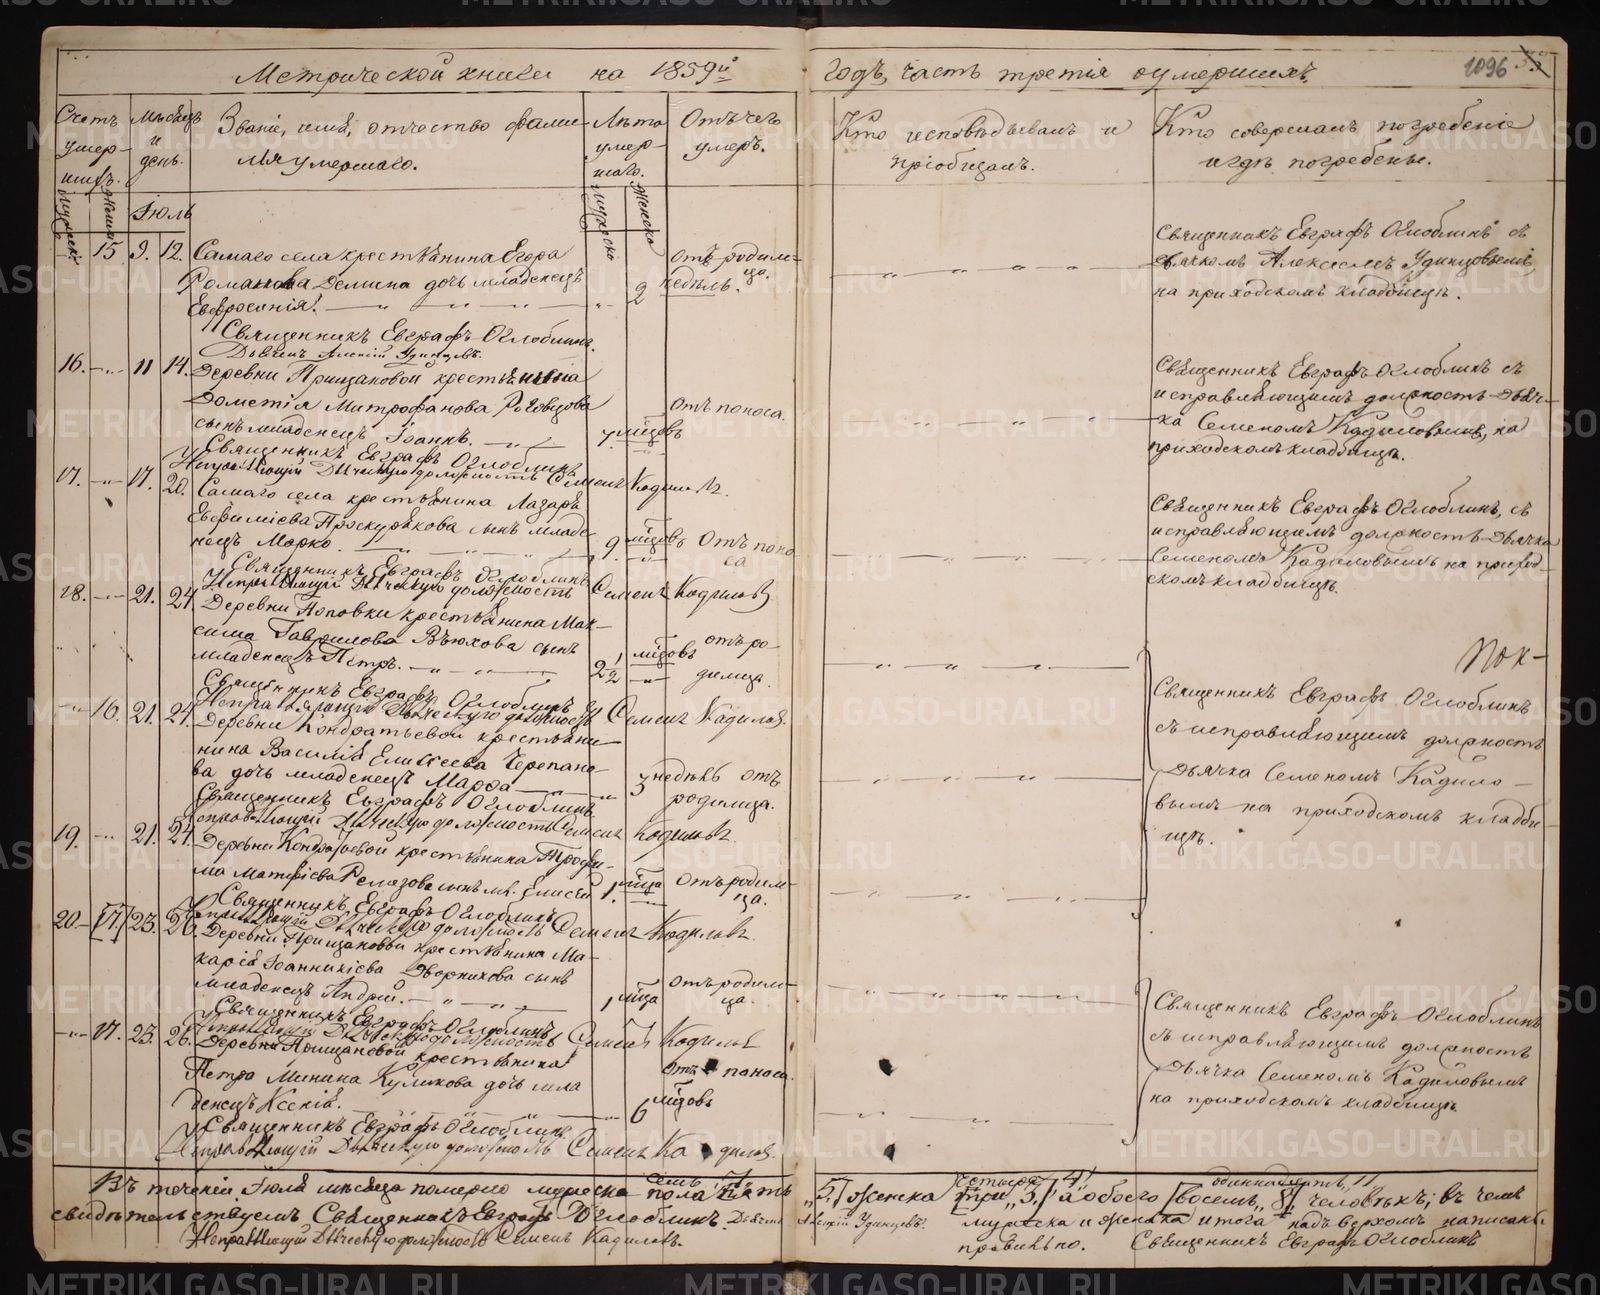 Метрической книги на 1859й
годъ, часть третія о умершихъ.
1096
Счетъ умер-
шихъ.
Мужеска
Женска
Мѣсяцъ
и
день.
Званіе, имя, отчество фами-
лія умершаго.
Лѣта
умер-
шаго.
Мужеска
Женска
Отъ чего
умеръ.
Кто исповѣдывалъ и
пріобщалъ.
Кто совершалъ погребеніе
и гдѣ погребены.
Іюль
15 9. 12. Самаго села крестьянина Егора
Романова Демина дочь младенецъ
Евфросинія.
2 недѣль.
отъ родим-
ца.
Священникъ Евграфъ Оглоблинъ съ
дьячкомъ Алексѣемъ Удинцовымъ,
на приходскомъ кладбищѣ.
Священникъ Евграфъ Оглоблинъ.
Дьячекъ Алексій Удинцовъ.
16. 11 14. Деревни Прищановой крестьянина
Дометія Митрофанова Роговцова
сынъ младенецъ Іоаннъ.
7. мѣсцовъ
отъ поноса.
Священникъ Евграфъ Оглоблинъ съ
исправляющимъ должность дьяч-
ка Семеномъ Кадиловымъ, на
приходскомъ кладбищѣ.
Священникъ Евграфъ Оглоблинъ
Исправляющій Дьяческую должность Семенъ Кадиловъ.
17. 17. 20. Самаго села крестьянина Лазаря
Евфиміева Проскурякова сынъ младе-
нецъ Марко.
9. мѣсцовъ
Отъ поно-
са
Священникъ Евграфъ Оглоблинъ, съ
исправляющимъ должность дьячка
Семеномъ Кадиловымъ на приход-
скомъ кладбищѣ.
Священникъ Евграфъ Оглоблинъ
Исправляющій Дьяческую должность Семенъ Кадиловъ
18. 21. 24. Деревни Поповки крестьянина Мак-
сима Гаврилова Вьюхова сынъ
младенецъ Петръ.
2 1/2 мѣсцовъ
отъ ро-
димца.
Священникъ Евграфъ Оглоблинъ
Исправляющій Дьяческую должность Семенъ Кадиловъ.
16. 21. 24. Деревни Кондратьевой крестьяни-
нина Василія Елисеева Черепано-
ва дочь младенецъ Марфа
3 недѣль отъ
родимца.
Священникъ Евграфъ Оглоблинъ
съ исправляющимъ должность
дьячка Семеномъ Кадило-
вымъ на приходскомъ кладби-
щѣ.
Священникъ Евграфъ Оглоблинъ.
Исправляющій Дьяческую должность Семенъ Кадиловъ.
19. 21. 24. Деревни Кондратьевой крестьянина Трофи-
ма Матфіева сынъ мл. Елисей
1. мѣсца
отъ родим-
ца.
Священникъ Евграфъ Оглоблинъ
Исправляющій Дьяческую должность Семенъ Кадиловъ.
20. [17.] 23. 26. Деревни Прищановой крестьянина Ма-
карія Іоанникіева Дворникова сынъ
младенецъ Андрей.
1 мѣсца
отъ родим-
ца.
Священникъ Евграфъ Оглоблинъ
Исправляющій Дьяческую должность Семенъ Кадиловъ
17. 23. 26. Деревни Прищановой крестьянина
Петра Минина Куликова дочь мла
денецъ Ксенія.
6 мѣсцовъ
отъ поноса.
Священникъ Евграфъ Оглоблинъ
съ исправляющимъ должность
дьячка Семеномъ Кадиловымъ
на приходскомъ кладбищѣ.
Священникъ Евграфъ Оглоблинъ.
Исправляющій Дьяческую должность Семенъ Кадиловъ.
семь 7 четыре 4 одиннадцать, 11
Въ теченіи Іюля мѣсяца померло мужеска пола [пять „5,] женска [три „3,] а обоего [восемь „8,] человѣкъ; въ чемъ
свидѣтельствуемъ Священникъ Евграфъ Оглоблинъ. Дьячекъ Алексій Удинцевъ. мужеска и женска итога надъ верхомъ написаны
Исправляющій Дьяческую должность Семенъ Кадиловъ. правильно. Священникъ Евграфъ Оглоблинъ
METRIKI.GASO-URAL.RU